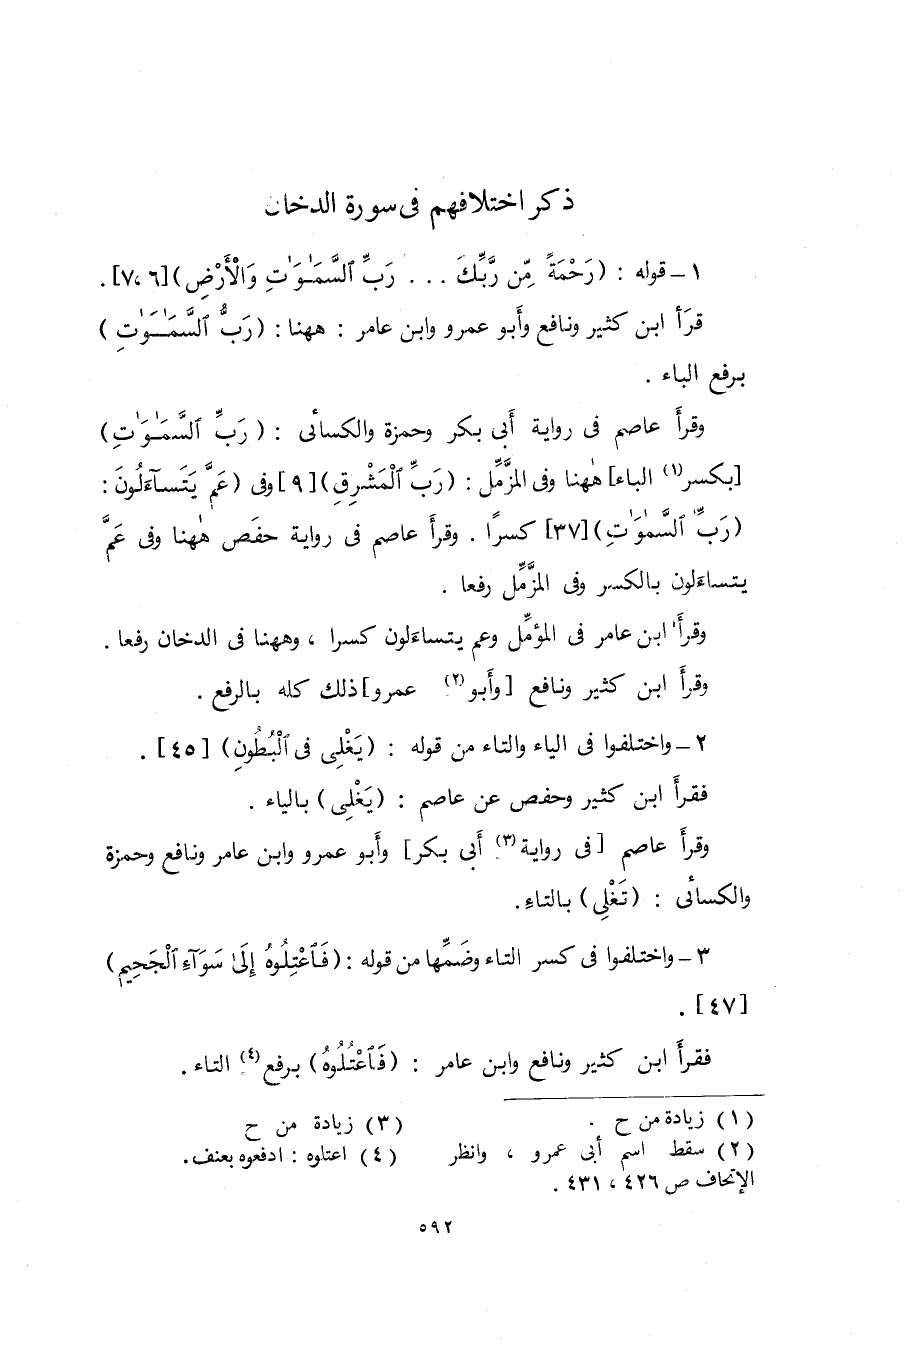 ذكر اختلافهم فى سورة الدخان
١ - قوله : (رَحْمَةً مِّن رَّبِّكَ ... رَبِّ ٱلسَّمَـٰوَٰتِ وَالْأَرْضِ)[٦ ،٧].
قرَأ ابن كثير ونافع وأَبو عمرو وابن عامر : ههنا : (رَبُّ ٱلسَّمَـٰوَٰتِ )
برفع الباء .
وقرأَ عاصم فى رواية أَبى بكر وحمزة والكسائى : ( رَبِّ ٱلسَّمَـٰوَٰتِ)
[بكسر(١) الباء] هٰهنا وفى المزَّمِّل : (رَبِّ ٱلْمَشْرِقِ)[٩] وفى (عَمَّ يَتَسَآءَلُونَ :
(رَبِّ ٱلسَّمَٰوَٰتِ)[٣٧] كسرًا . وقرأَ عاصم فى رواية حفَص هٰهنا وفى عَمَّ
يتساءلون بالكسر وفى المزَّمِّل رفعا .
وقرأَ ابن عامر فى المؤمِّل وعم يتساءلون كسرا ، وههنا فى الدخان رفعا .
وقرأَ ابن كثير ونافع [وأَبو(٢) عمرو]ذلك كله بالرفع .
٢ - واختلفوا فى الياء والتاء من قوله : (يَغْلِى فى ٱلْبُطُونِ) [٤٥] .
فقرأَ ابن كثير وحفص عن عاصم : (يَغْلِى) بالياء .
وقرأَ عاصم [فى رواية(٣) أَبى بكر] وأَبو عمرو وابن عامر ونافع وحمزة
والكسائى : (تَغْلِى) بالتاءِ.
٣ - واختلفوا فى كسر التاء وضَمِّها من قوله :(فَٱعْتِلُوهُ إِلَىٰ سَوَآءِ ٱلْجَحِيمِ)
[٤٧] .
فقرأَ ابن كثير ونافع وابن عامر : (فَٱعْتُلُوهُ) برفع(٤) التاء .
(١) زيادة من ح .
(٢) سقط اسم أبى عمرو ، وانظر
الإتحاف ص ٤٢٦ ، ٤٣١ .
(٣) زيادة من ح
(٤) اعتلوه : ادفعوه بعنف.
٥٩٢